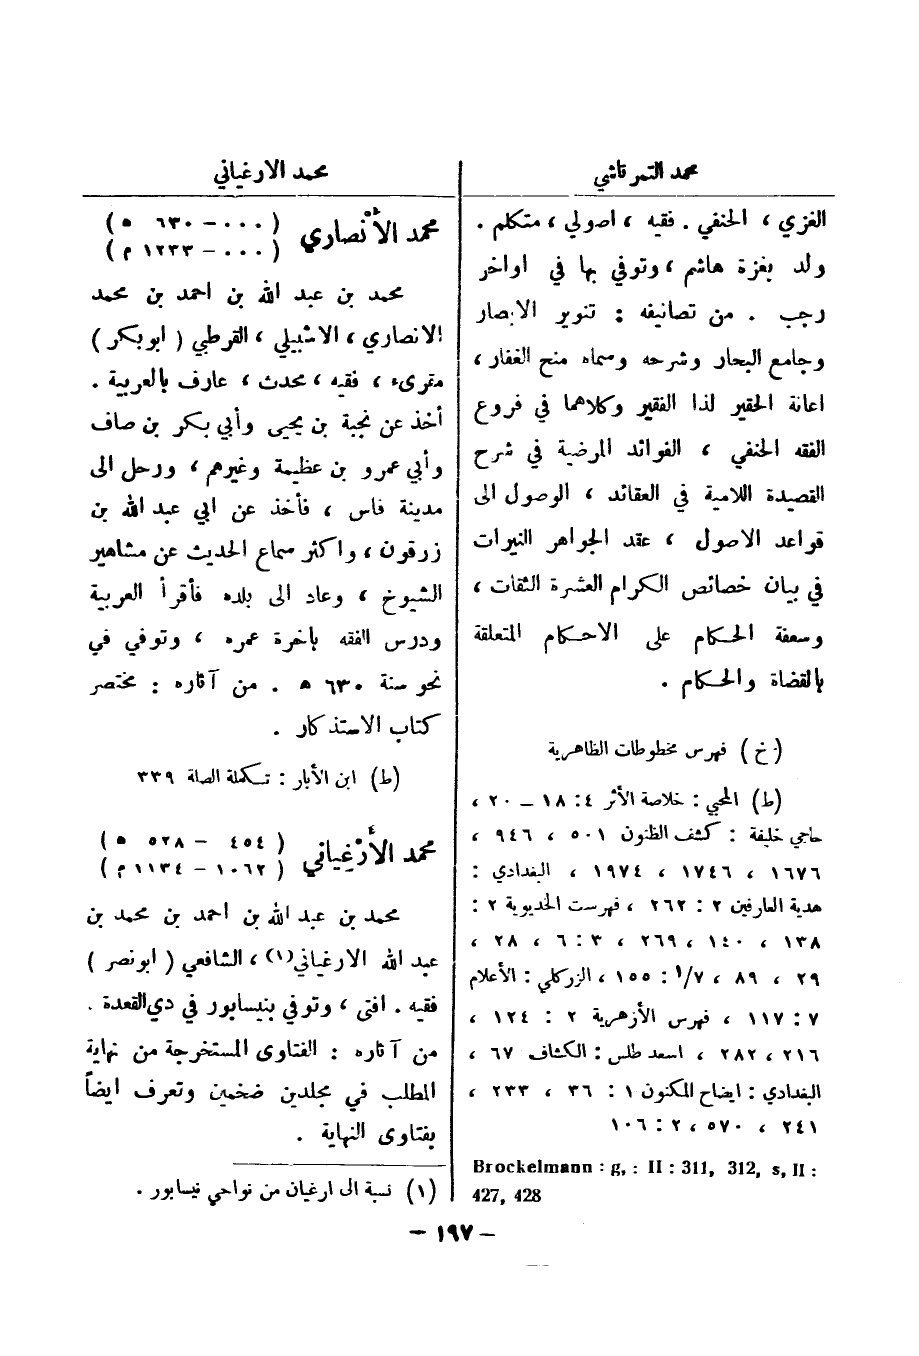 محمد التمرتاشي
الغزي ، الحنفي . فقيه ، اصولي ، متكلم .
ولد بغزة هاشم ، وتوفي بها في اواخر
رجب . من تصانيفه : تنوير الابصار
وجامع البحار وشرحه وسماه منح الغفار ،
اعانة الحقير لذا الفقير وكلاهما في فروع
الفقه الحنفي ، الفوائد المرضية في شرح
القصيدة اللامية في العقائد ، الوصول الى
قواعد الاصول ، عقد الجواهر النيرات
في بيان خصائص الكرام العشرة الثقات ،
وسعفة الحكام على الاحكام المتعلقة
بالقضاة والحكام .
(خ) فهرس مخطوطات الظاهرية
(ط) المحبي : خلاصة الأثر ٤: ١٨ – ٢٠ ،
حاجي خليفة : كشف الظنون ٥٠١ ، ٩٤٦ ،
١٦٧٦ ، ١٧٤٦ ، ١٩٧٤ ، البغدادي :
هدية العارفين ٢ : ٢٦٢ ، فهرست الخديوية ٢ :
١٣٨ ، ١٤٠ ، ٢٦٩ ، ٣ : ٦ ، ٢٨ ،
٢٩ ، ٨٩ ، ١/٧ : ١٥٥ ، الزركلي : الأعلام
٧ : ١١٧ ، فهرس الأزهرية ٢ : ١٢٤ ،
٢١٦ ، ٢٨٢ ، اسعد طلس : الكشاف ٦٧ ،
البغدادي : ايضاح المكنون ١ : ٣٦ ، ٢٣٣ ،
٢٤١ ، ٥٧٠ ، ٢ : ١٠٦
Brockelmann : g, : II : 311, 312, s, II :
427, 428
محمد الارغياني
محمد الأنْصاري (٠٠٠ – ٦٣٠ ه)
(٠٠٠ – ١٢٣٣ م)
محمد بن عبد الله بن احمد بن محمد
الانصاري ، الاشبيلي ، القرطبي ( ابو بكر )
مقرىء ، فقيه ، محدث ، عارف بالعربية .
أخذ عن نجبة بن يحيى وأبي بكر بن صاف
وأبي عمرو بن عظيمة وغيرهم ، ورحل الى
مدينة فاس ، فأخذ عن ابي عبد الله بن
زرقون ، واكثر سماع الحديث عن مشاهير
الشيوخ ، وعاد الى بلده فأقرأ العربية
ودرس الفقه بأخرة عمره ، وتوفي في
نحو سنة ٦٣٠ ه . من آثاره : مختصر
كتاب الاستذكار .
(ط) ابن الأبار : تكملة الصلة ٣٣٩
محمد الأَرْغِياني (٤٥٤ – ٥٢٨ ه)
(١٠٦٢ – ١١٣٤ م)
محمد بن عبد الله بن احمد بن محمد بن
عبد الله الارغياني(١) ، الشافعي ( ابو نصر )
فقيه . افتى ، وتوفي بنيسابور في ذي القعدة .
من آثاره : الفتاوى المستخرجة من نهاية
المطلب في مجلدين ضخمين وتعرف ايضاً
بفتاوى النهاية .
(١) نسبة الى ارغيان من نواحي نيسابور .
– ١٩٧ –